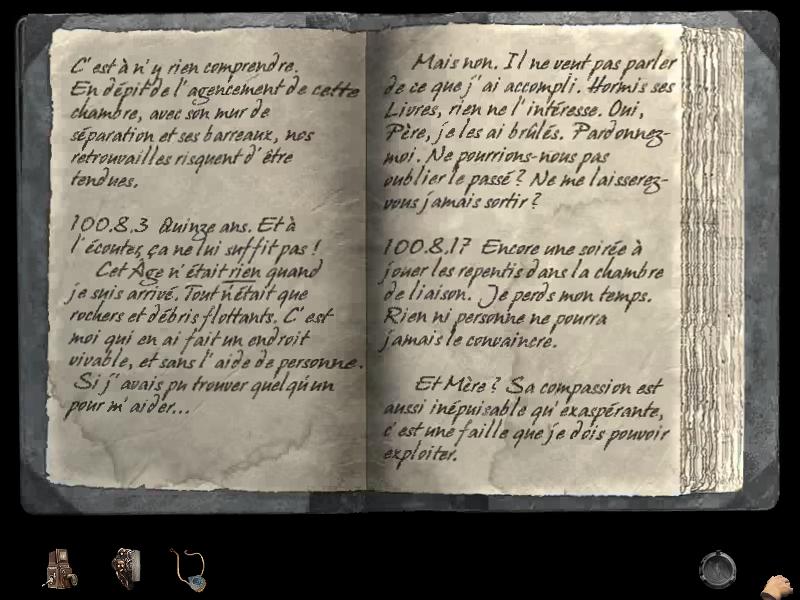 C'est à n'y rien comprendre.
En dépit de l'agencement de cette
chambre, avec son mur de
séparation et ses barreaux, nos
retrouvailles risquent d'être
tendues.
100.8.3 Quinze ans. Et à
l'écouter, ça ne lui suffit pas !
Cet Âge n'était rien quand
je suis arrivé. Tout n'était que
rochers et débris flottants. C'est
moi qui en ai fait un endroit
vivable, et sans l'aide de personne.
Si j'avais pu trouver quelqu'un
pour m'aider...
Mais non. Il ne veut pas parler
de ce que j'ai accompli. Hormis ses
Livres, rien ne l'intéresse. Oui,
Père, je les ai brûlés. Pardonnez-
moi. Ne pourrions-nous pas
oublier le passé ? Ne me laisserez-
vous jamais sortir ?
100.8.17 Encore une soirée à
jouer les repentis dans la chambre
de liaison. Je perds mon temps.
Rien ni personne ne pourra
jamais le convaincre.
Et Mère ? Sa compassion est
aussi inépuisable qu'exaspérante,
c'est une faille que je dois pouvoir
exploiter.